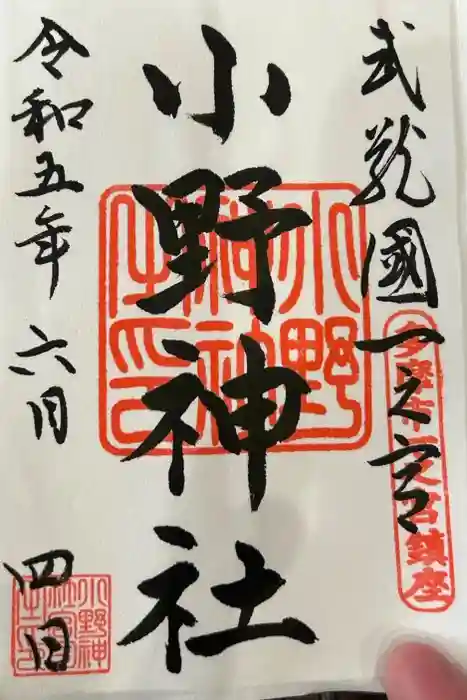 武蔵國一之宮
多摩市一之宮鎮座
小野神社
小野神社之印
令和五年六月四日